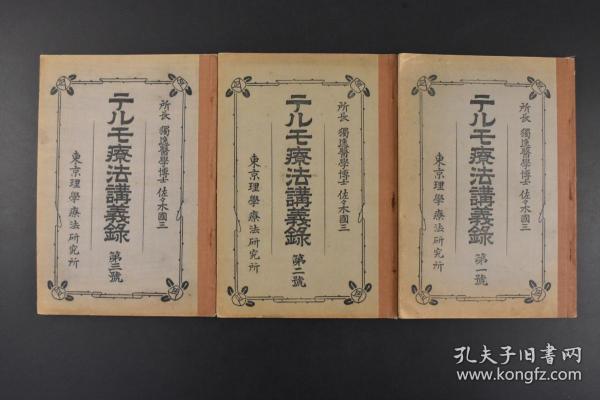 所長 獨逸醫學博士 佐々木國三
テルモ療法講義錄 第一號
東京理學療法研究所
所長 獨逸醫學博士 佐々木國三
テルモ療法講義錄 第二號
東京理學療法研究所
所長 獨逸醫學博士 佐々木國三
テルモ療法講義錄 第三號
東京理學療法研究所
孔夫子旧书网
www.kongfz.com